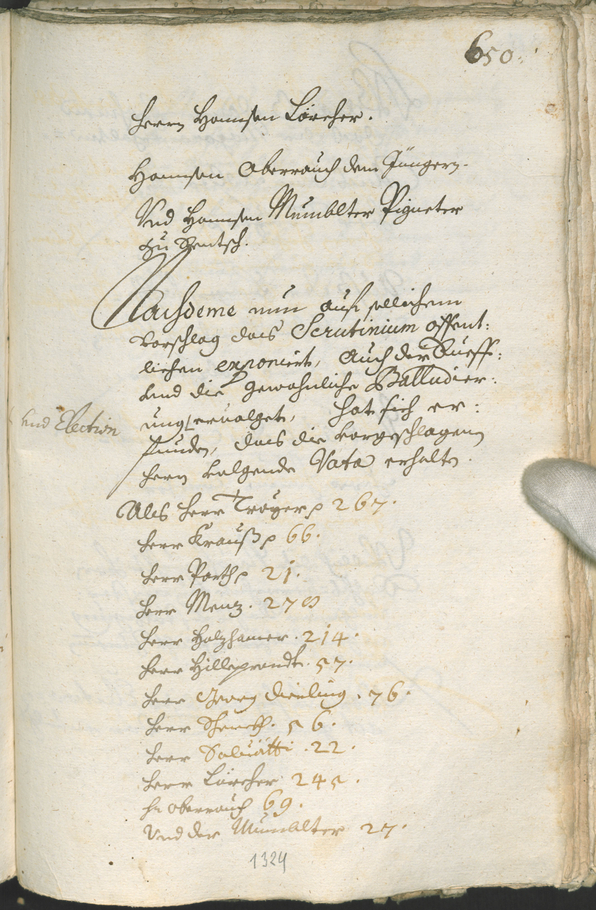 650.
Herrn Hannsen Lärcher.
Hannsen Oberrauch dem Jüngern.
Vnd Hannsen Mumblter Pigneter
zu Gentsch.
Nachdeme nun auf sollichem
vorschlag das Scrutinium offent:
lichen exponiert, auch der Aufs:
vnd die gewohnliche Balladier:
ung ervolget, hat sich er:
vnd Election
funden, das die vorgeschlagenen
Herrn volgende Vota erhalten.
Als Herr Troyer p 267.
Herr Krauß p 66.
Herr Porth p 21.
Herr Menz. 270
Herr Holzhamer. 214.
Herr Hilleprandt. 57.
Herr Georg Dieling. 76.
Herr 56.
Herr Salvätti. 22.
Herr Lärcher 245.
Hr. Oberrauch 69.
Vnd der Mumblter 27.
1324